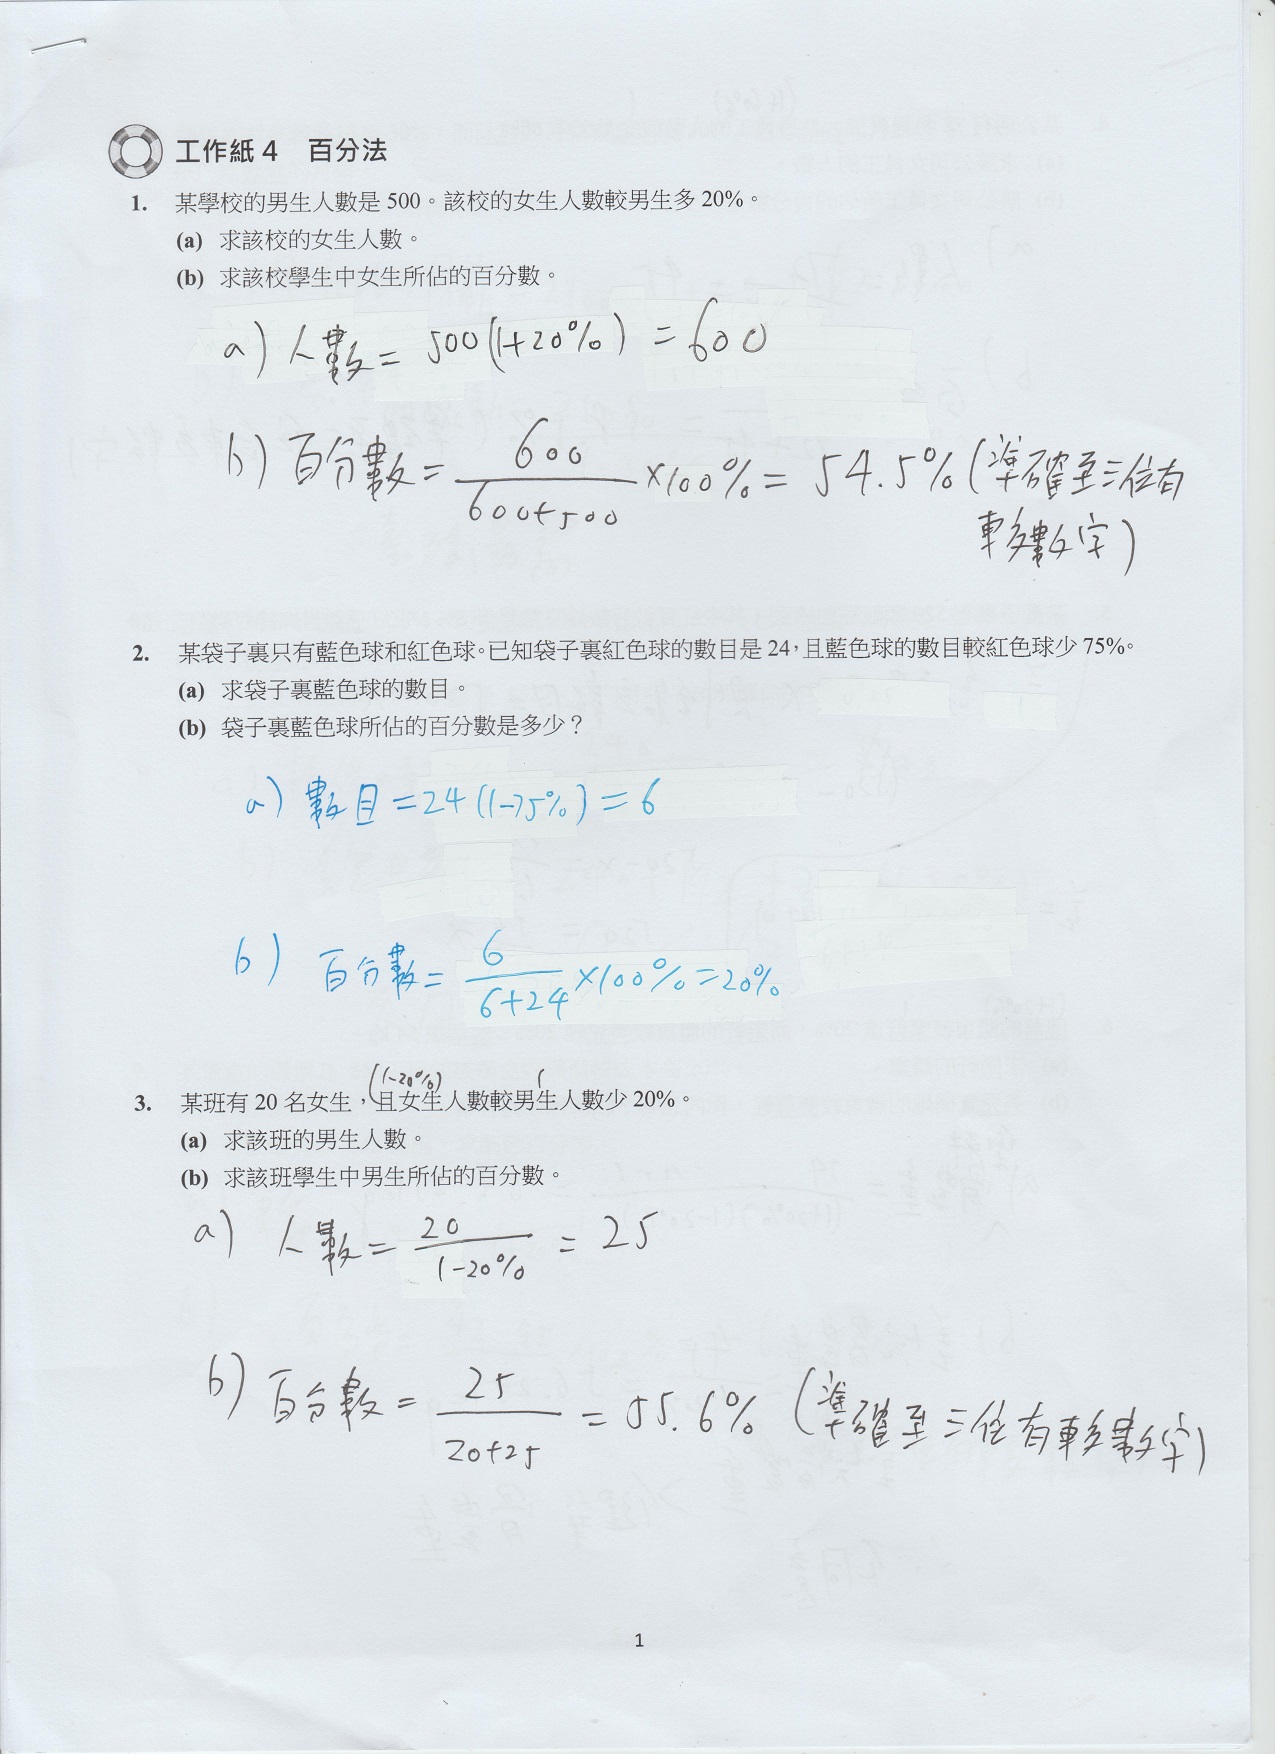 工作紙 4　百分法
1. 某學校的男生人數是 500。該校的女生人數較男生多 20%。
(a) 求該校的女生人數。
(b) 求該校學生中女生所佔的百分數。
a) 人數 = 500(1+20%) = 600
b) 百分數 = 600/(600+500) ×100% = 54.5% (準確至三位有
較多數字)
2. 某袋子裏只有藍色球和紅色球。已知袋子裏紅色球的數目是 24，且藍色球的數目較紅色球少 75%。
(a) 求袋子裏藍色球的數目。
(b) 袋子裏藍色球所佔的百分數是多少？
a) 數目 = 24(1-75%) = 6
b) 百分數 = 6/(6+24) ×100% = 20%
(1-20%) 1
3. 某班有 20 名女生，且女生人數較男生人數少 20%。
(a) 求該班的男生人數。
(b) 求該班學生中男生所佔的百分數。
a) 人數 = 20/(1-20%) = 25
b) 百分數 = 25/(20+25) = 55.6% (準確至三位有較多數字)
1